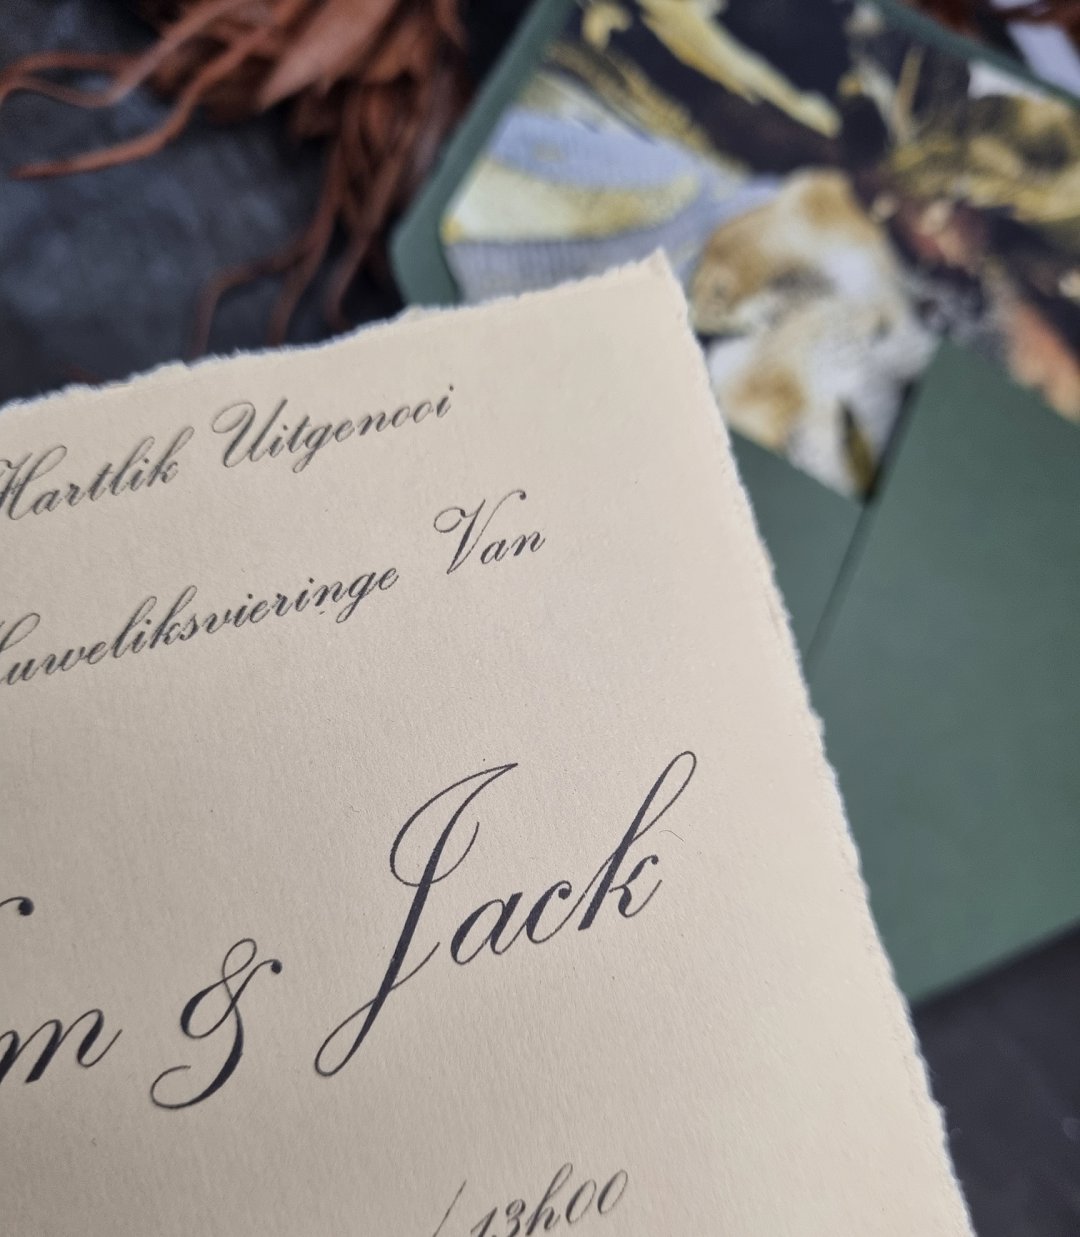 Hartlik Uitgenooi
Huweliksvieringe Van
& Jack
/ 13h00